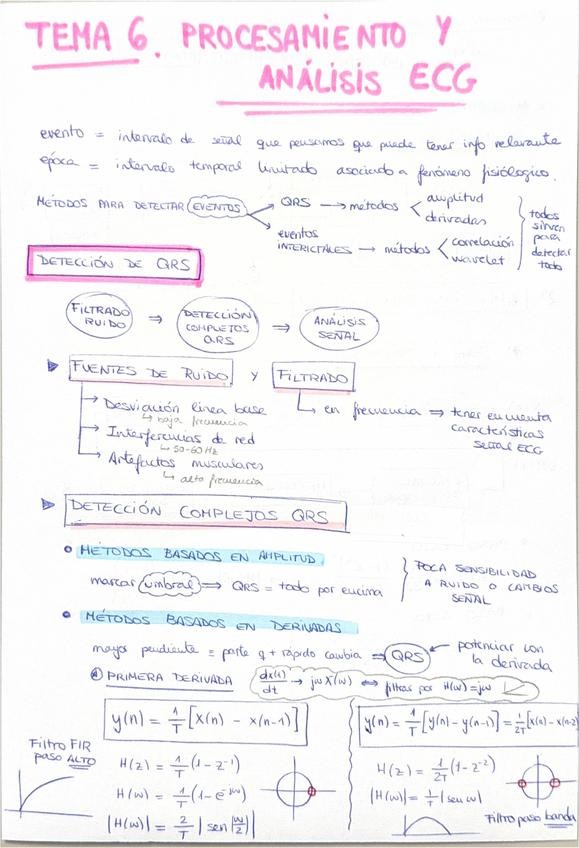 TEMA 6. PROCESAMIENTO Y
ANÁLISIS ECG
evento = intervalo de señal que pensamos que puede tener info relevante
época = intervalo temporal limitado asociado a fenómeno fisiológico.
MÉTODOS PARA DETECTAR EVENTOS
QRS → métodos < amplitud
derivadas
eventos
INTERICTALES → métodos < correlación
wavelet
todos
sirven
para
detectar
todo
DETECCIÓN DE QRS
FILTRADO
RUIDO
⇒ DETECCIÓN
COMPLEJOS
QRS
⇒ ANÁLISIS
SEÑAL
FUENTES DE RUIDO Y FILTRADO
→ Desviación línea base
↳ baja frecuencia
→ Interferencias de red
↳ 50-60Hz
→ Artefactos musculares
↳ alta frecuencia
↳ en frecuencia ⇒ tener en cuenta
características
señal ECG
DETECCIÓN COMPLEJOS QRS
• MÉTODOS BASADOS EN AMPLITUD
marcar umbral ⇒ QRS = todo por encima
POCA SENSIBILIDAD
A RUIDO O CAMBIOS
SEÑAL
• MÉTODOS BASADOS EN DERIVADAS
mayor pendiente = parte q + rápido cambia ⇒ QRS ← potenciar con
la derivada
PRIMERA DERIVADA dx(t)/dt → jw X(w) ⇔ filtrar por H(w)=jw
y(n) = 1/T [x(n) - x(n-1)]
Filtro FIR
paso ALTO
H(z) = 1/T (1-z⁻¹)
H(w) = 1/T (1-e^-jw)
|H(w)| = 2/T |sen(w/2)|
y(n) = 1/T [y(n) - y(n-1)] = 1/2T [x(n) - x(n-2)
H(z) = 1/2T (1-z⁻²)
|H(w)| = 1/T |sen w|
Filtro paso banda